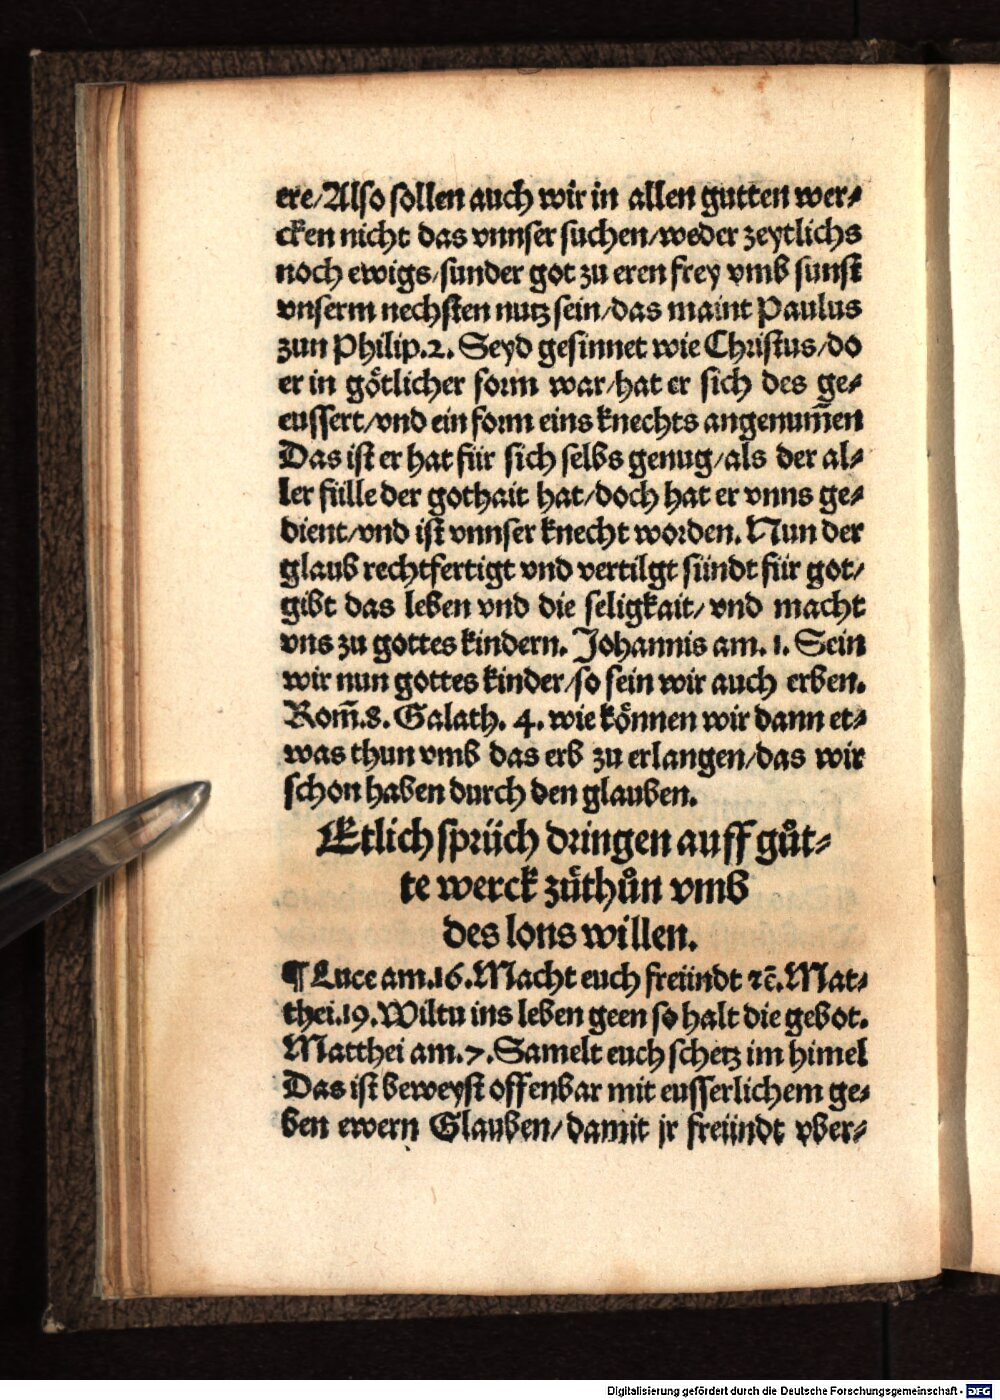 ere/Also sollen auch wir in allen gutten wer⸗
cken nicht das vnnser suchen/weder zeytlichs
noch ewigs/sunder got zu eren frey vmb sunst
vnserm nechsten nutz sein/das maint Paulus
zun Philip.2. Seyd gesinnet wie Christus/do
er in götlicher form war/hat er sich des ge⸗
eussert/vnd ein form eins knechts angenum̃en
Das ist er hat für sich selbs genug/als der al⸗
ler fülle der gothait hat/doch hat er vnns ge⸗
dient/vnd ist vnnser knecht worden. Nun der
glaub rechtfertigt vnd vertilgt sündt für got/
gibt das leben vnd die seligkait/vnd macht
vns zu gottes kindern. Johannis am. 1. Sein
wir nun gottes kinder/so sein wir auch erben.
Rom̃.8. Galath. 4. wie können wir dann et⸗
was thun vmb das erb zu erlangen/das wir
schon haben durch den glauben.
Etlich sprüch dringen auff gůt⸗
te werck zůthůn vmb
des lons willen.
¶ Luce am.16. Macht euch freündt ⁊c̃. Mat⸗
thei.19. Wiltu ins leben geen so halt die gebot.
Matthei am.7. Samelt euch schetz im himel
Das ist beweyst offenbar mit eusserlichem ge⸗
ben ewern Glauben/damit jr freündt vber⸗
Digitalisierung gefördert durch die Deutsche Forschungsgemeinschaft - DFG